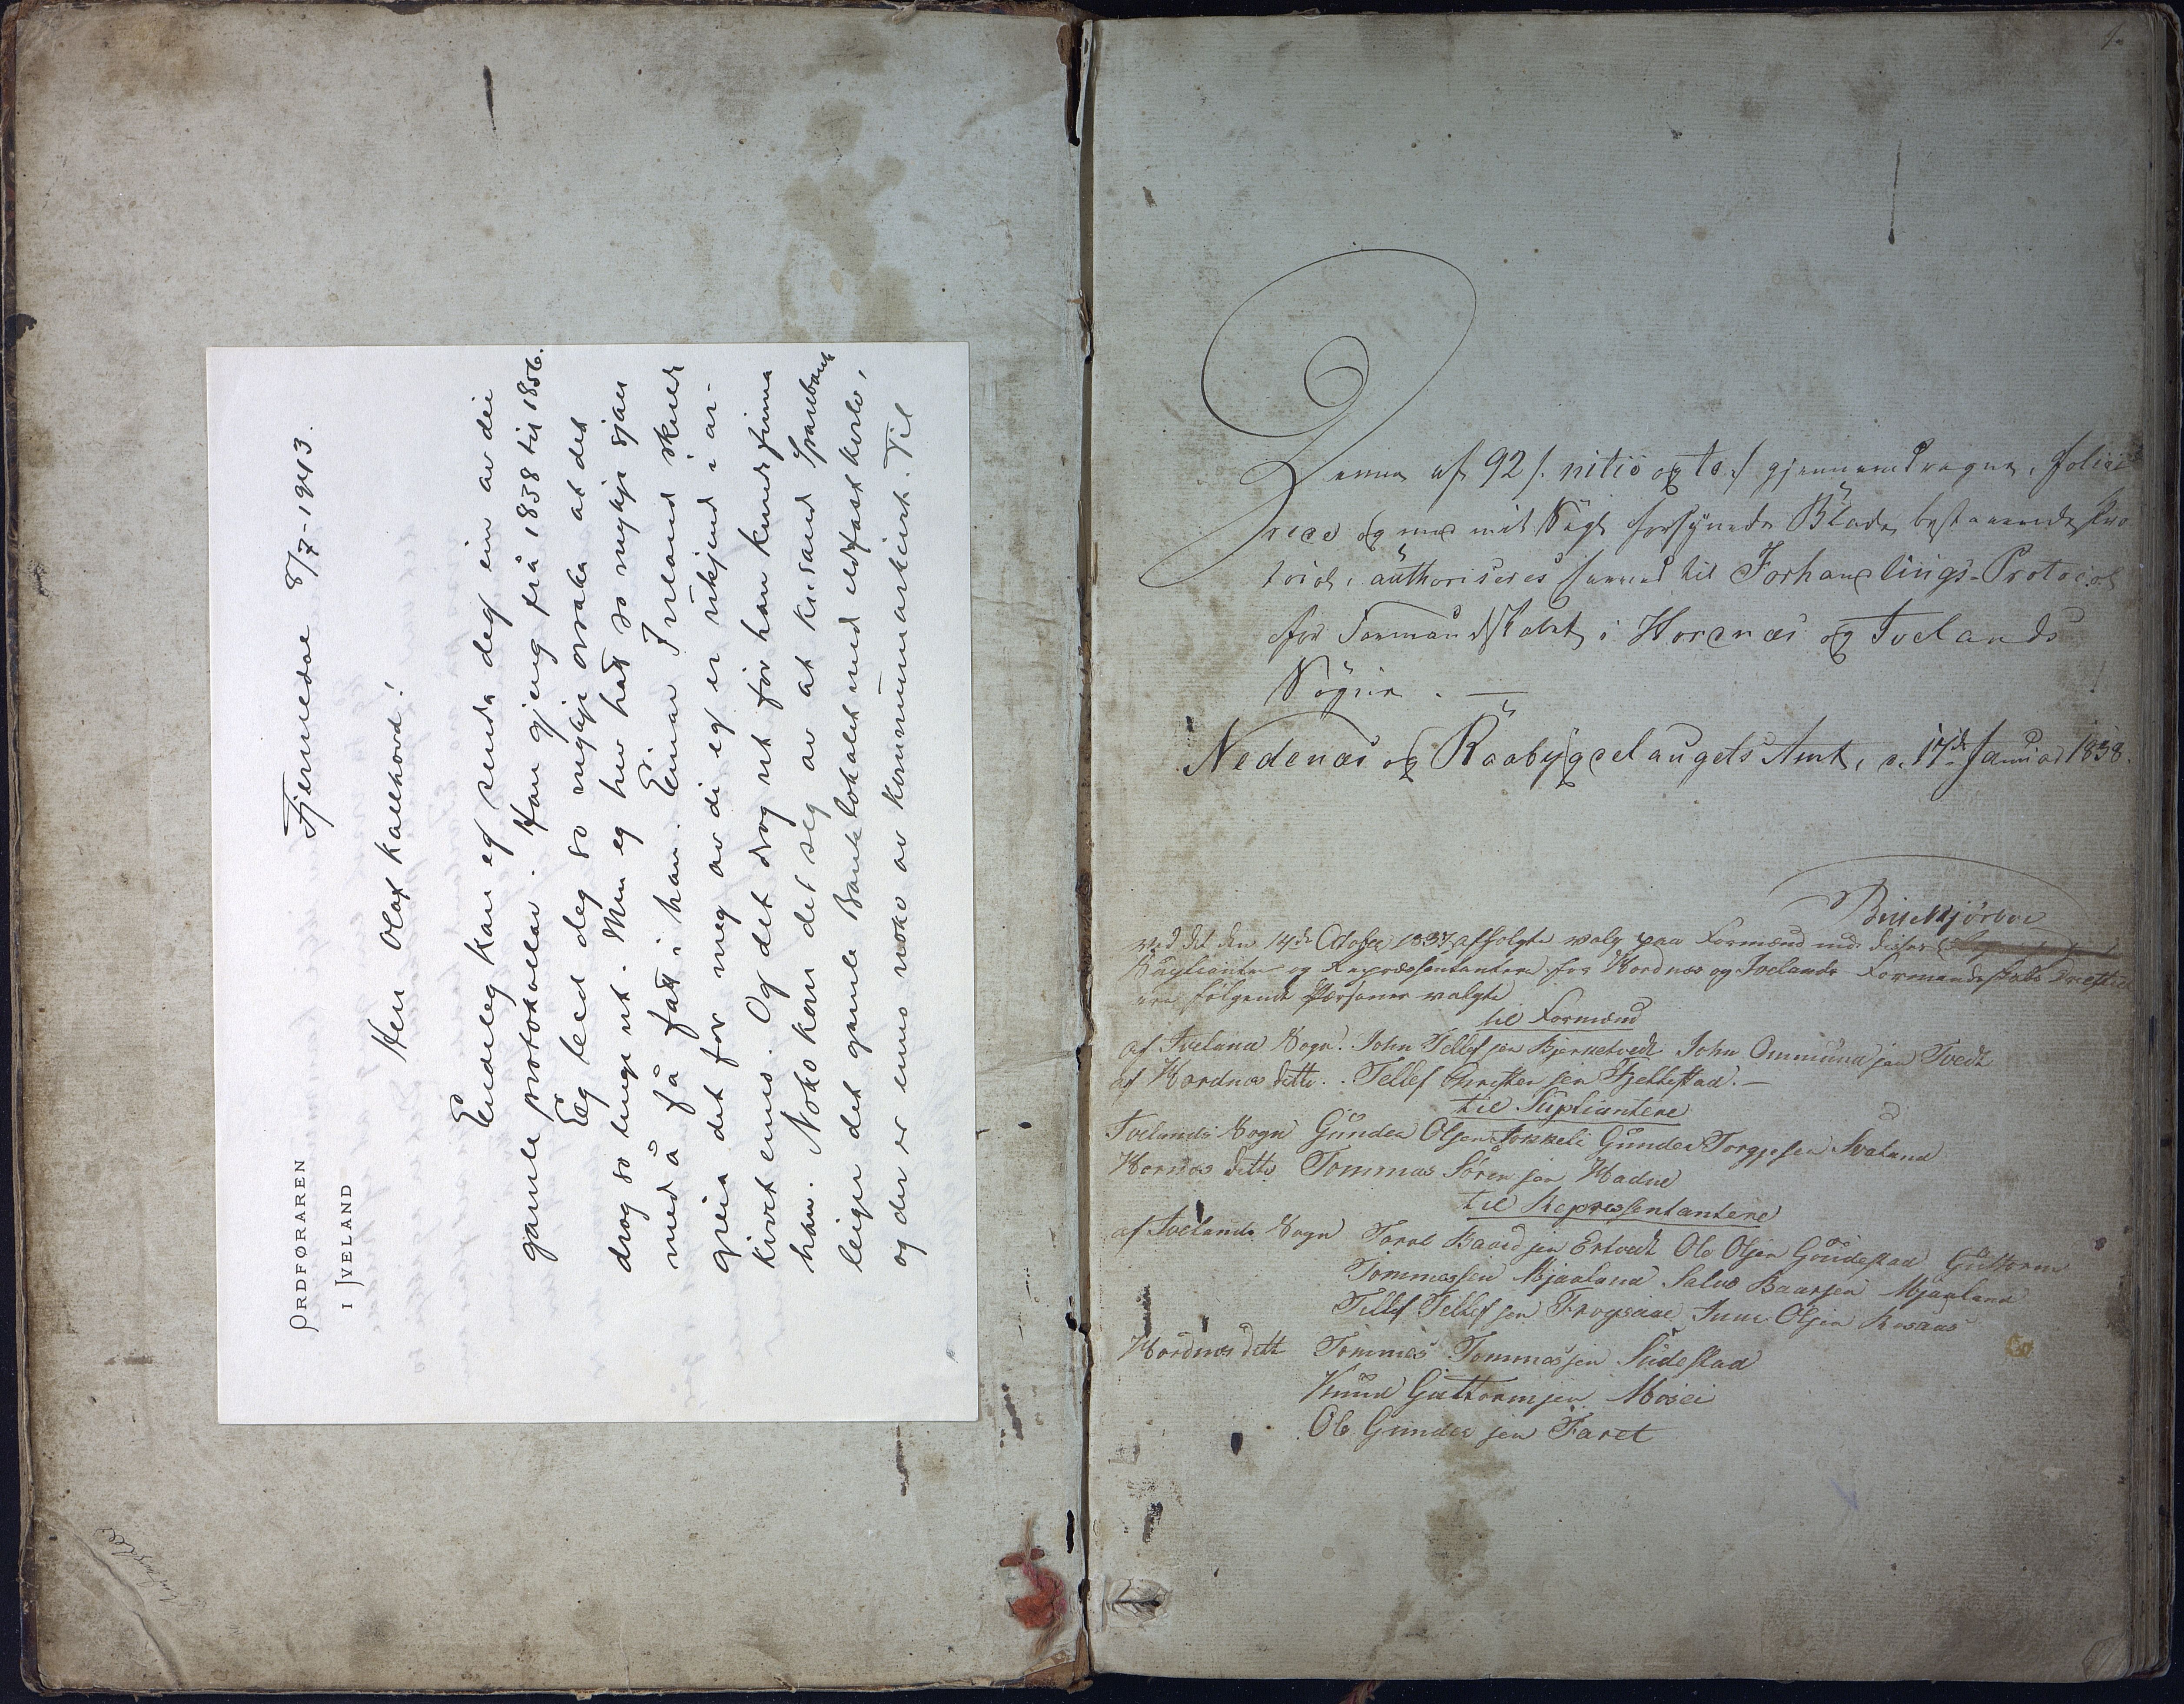 ORDFØRAREN
I IVELAND
Tjernedae 8/7-1943.
Herr Olaf Kallhovd!
Endeleg kan eg senda deg ein av dei
gamle protokollar. Han gjeng frå 1838 til 1856.
Eg leed deg so mykje orsaka at det
drog so lenge ut. Men eg hev hatt so mykje sjau
med å få fatt i han. Einar Ireland skulde
greia det for meg av di eg er ukjend i ar-
kivet enno. Og det drog ut før han kunde finna
han. Noko kom det seg av at Kr.sand Sparebank
leiger det gamle Banklokalet med eldfast kvelv,
og der er enno noko av kommunearkivet. Til
1.
Denne af 92 /: nitio og to :/ gjennemdragne, folie-
rede og med mit Segl forsynede Blade bestaaende Pro-
tocol, authoriseres herved til Forhandlings-Protocol
for Formandskabet i Hornnæs og Ivelands
Sogne. —
Nedenæs og Raabygdelaugets Amt, d. 17de Januar 1838.
Bille Kjørboe
Ved det den 14de October 1837 afholgte valg paa Formænd med disses
Supliantere og Repræsentantere for Hordnæs og Ivelands Formandskabs Distrikt
ere følgende Personer valgte
til Formænd
af Iveland Sogn: John Tellefsen Bjerketvedt John Ommundsen Tvedt
af Hordnæs ditto.. Tellef Christensen Fjellestad. —
til Supliantere
Ivelands Sogn Gunder Olsen Gunder Torgjesen Svaland
Hornæs ditto Tommas Sørensen
til Repræsentantere
af Ivelands Sogn Ertvedt Ole Olsen Guttorm
Tommassen Mjaaland Salve Baarsen Mjaaland
Tellef Tellefsen Frøysaae Olsen
Hordnæs ditto Tommas Tommassen
Knud Guttormsen Mosei
Ole Gundersen Faret